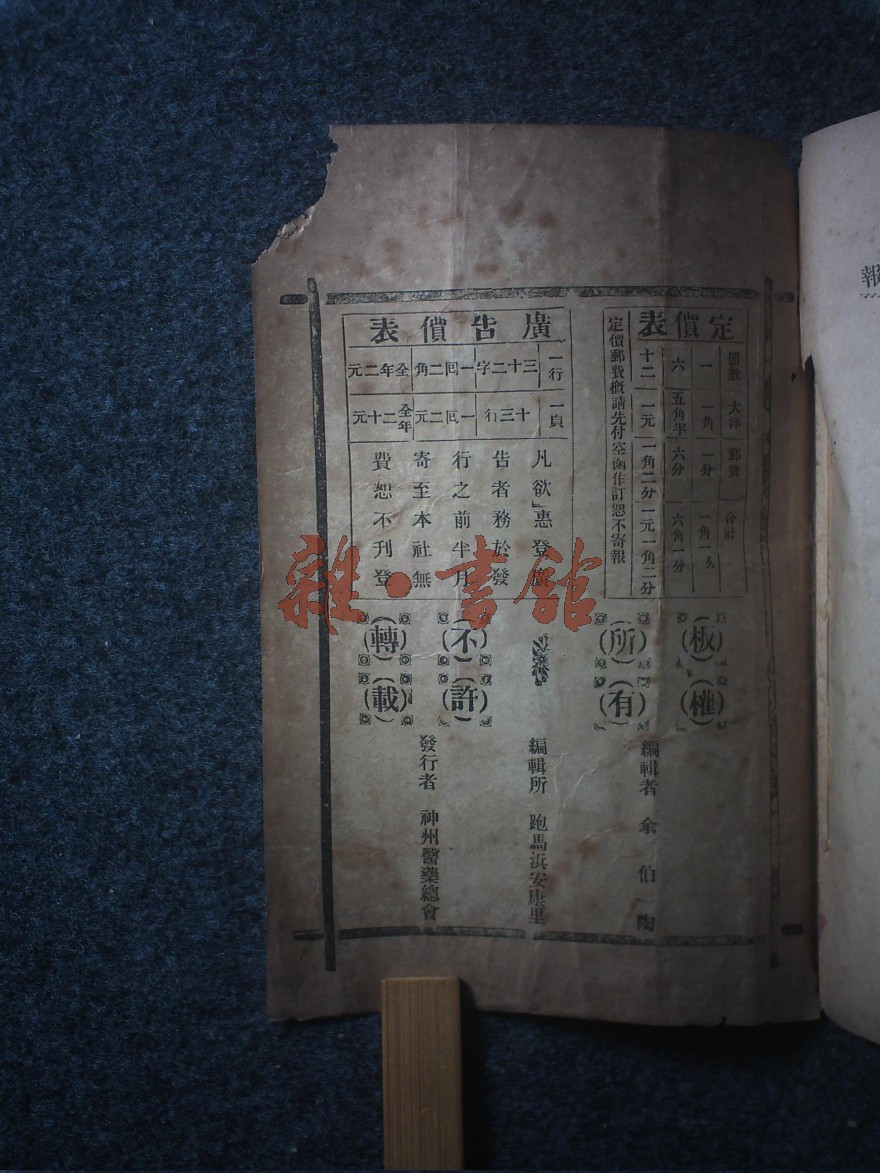 定價表
冊數 大洋 郵費 合計
一 一角 一分 一角一分
六 五角半 六分 六角一分
十二 一元 一角二分 一元一角二分
定價郵費概請先付空函作訂恕不寄報
廣告價表
一行 三十二字 一回二角 全年二元
一頁 十三行 一回二元 全年二十元
凡欲惠登廣
告者務於發
行之前半月
寄至本社無
費恕不刊登
(板)(權)
(所)(有)
(不)(許)
(轉)(載)
編輯者 余伯陶
編輯所 跑馬浜安康里
發行者 神州醫藥總會
報
雜·書館